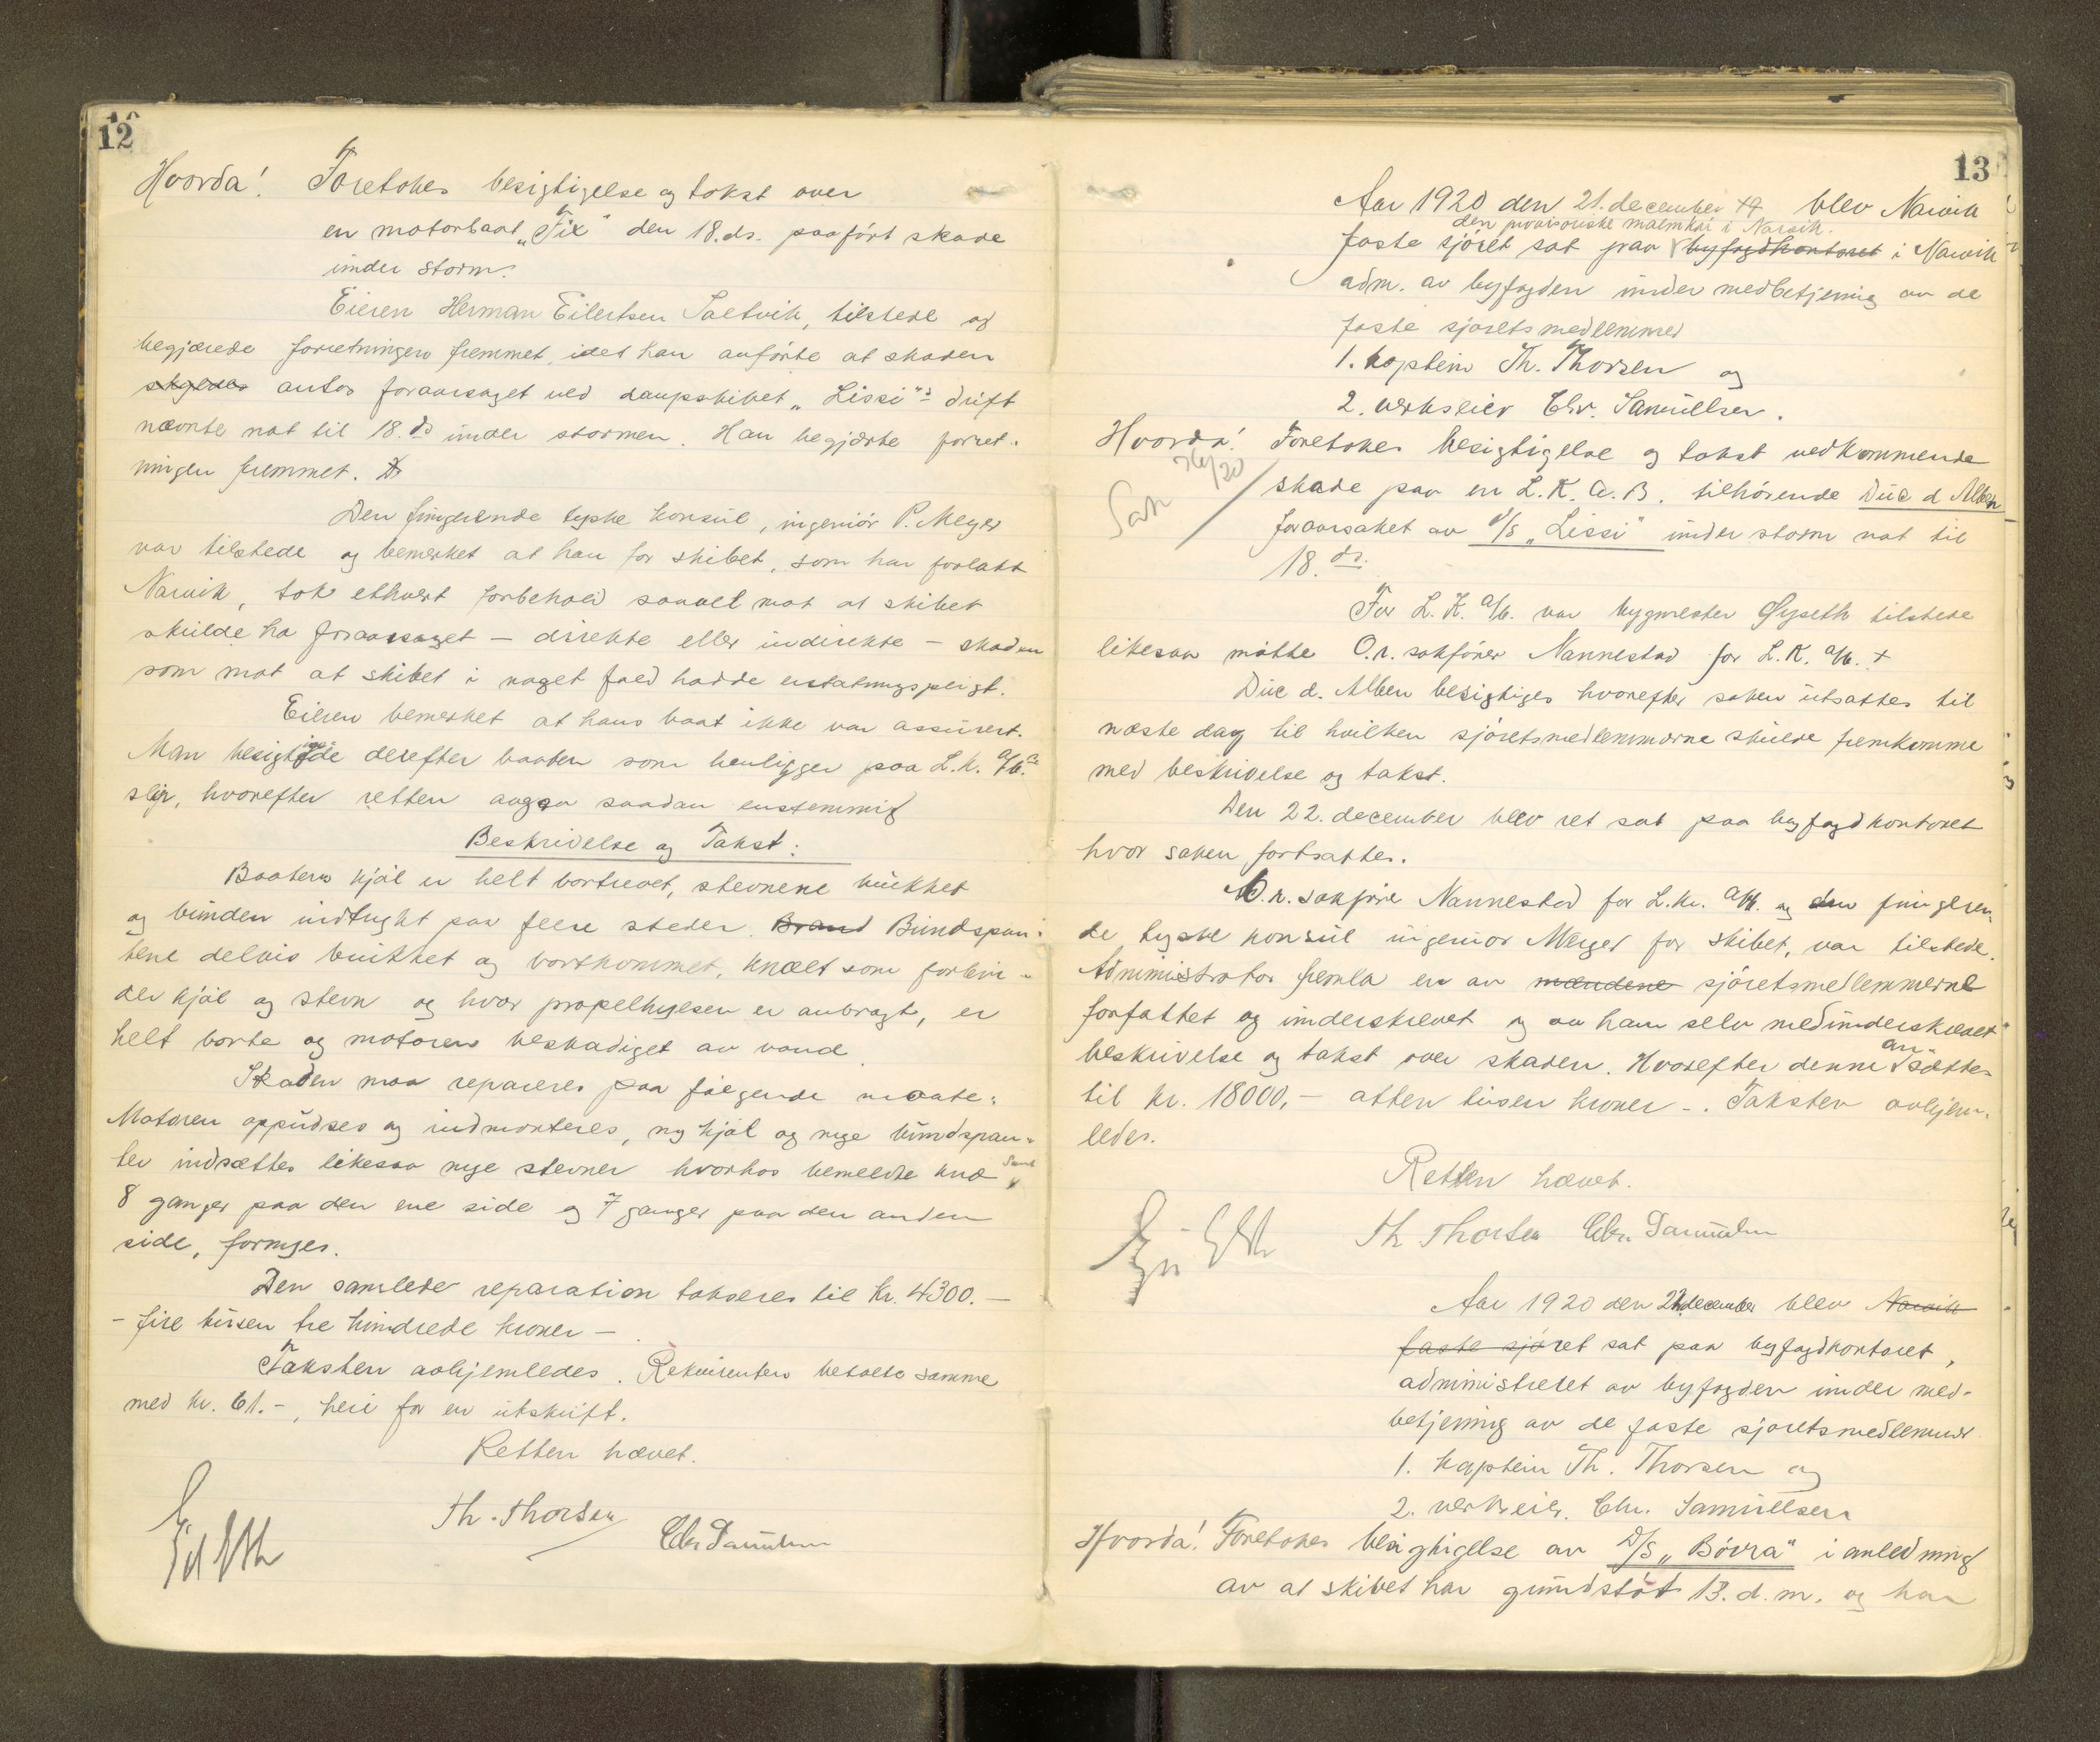 12
Hvorda! Foretokes besigtigelse og takst over
en motorbaat "Fix" den 18. ds. paaført skade
under storm.
Eieren Herman Eilertsen Taltvik, tilstede og
begjærede forretningen fremmet, idet han anførte at skaden
skyldes antas foraarsaget ved dampskibet "Lissi"s drift
nævnte nat til 18. ds under stormen. Han begjærte forret-
ningen fremmet.
Den fungerende tyske konsul, ingeniør P. Meyer
var tilstede og bemerket at han for skibet, som har forlatt
Narvik, tok ethvert forbehold saavel mot at skibet
skulde ha foraarsaget - direkte eller indirekte - skaden
som mot at skibet i noget fald hadde erstatningspligt.
Eieren bemerket at hans baat ikke var assurert.
Man besigtigede derefter baaten som henligger paa L.K. A/B.s
slip, hvorefter retten avgav saadan enstemmig
Beskrivelse og Takst:
Baatens kjøl er helt bortrevet, stevnene brukket
og bunden indtrykt paa flere steder. Brand Bundspan-
tene delvis brukket og bortkommet, knælt som forbin-
der kjøl og stevn og hvor propelhylsen er anbragt, er
helt borte og motoren beskadiget av vand
Skaden maa repareres paa følgende maate:
Motoren oppudses og indmonteres, ny kjøl og nye bundspan-
ter indsættes likesaa nye stevner hvorhos bemeldte knæ samt
8 ganger paa den ene side og 7 ganger paa den anden
side, fornyes.
Den samlede reparation takseres til Kr. 4300.-
- fire tusen tre hundrede kroner -
Taksten avhjemledes. Rekvirenten betalte samme
med kr. 61.-, heri for en utskrift.
Retten hævet.
Th. Thorsen
Chr Samuelsen
13
Aar 1920 den 21. december blev Narvik
den provisoriske malmkai i Narvik.
faste sjøret sat paa byfogdkontoret i Narvik
adm. av byfogden under medbetjening av de
faste sjøretsmedlemmer
1. kaptein Th. Thorsen og
2. verkseier Chr. Samuelsen.
Hvorda! Foretokes besigtigelse og takst vedkommende
Sak /20
skade paa en L.K.A.B. tilhørende Duc d Alben
foraarsaket av d/s "Lissi" under storm nat til
18. ds.
For L.K. A/B. var bygmester Gyseth tilstede
likesaa møtte O.r. sakfører Nannestad for L.K. A/B. +
Duc d. Alben besigtiges hvorefter saken utsattes til
næste dag til hvilken sjøretsmedlemmerne skulde fremkomme
med beskrivelse og takst.
Den 22. december blev ret sat paa byfogdkontoret
hvor saken fortsattes.
O.r. sakfører Nannestad for L.K. A/B. og den fungeren-
de tyske konsul ingeniør Meyer for skibet, var tilstede.
Administrator fremla en av mændene sjøretsmedlemmerne
forfattet og underskrevet og av ham selv medunderskrevet
beskrivelse og takst over skaden. Hvorefter denne ansættes
til kr. 18000,- atten tusen kroner -. Taksten avhjem-
ledes.
Retten hævet.
Th Thorsen Chr. Samuelsen
Aar 1920 den 22. december blev Narvik
faste sjøret sat paa byfogdkontoret,
administreret av byfogden under med-
betjening av de faste sjøretsmedlemmer
1. kaptein Th. Thorsen og
2. verkseier. Chr. Samuelsen
Hvorda! Foretokes besigtigelse av D/S "Bøvra" i anledning
av at skibet har grundstøt 13. d.m. og har